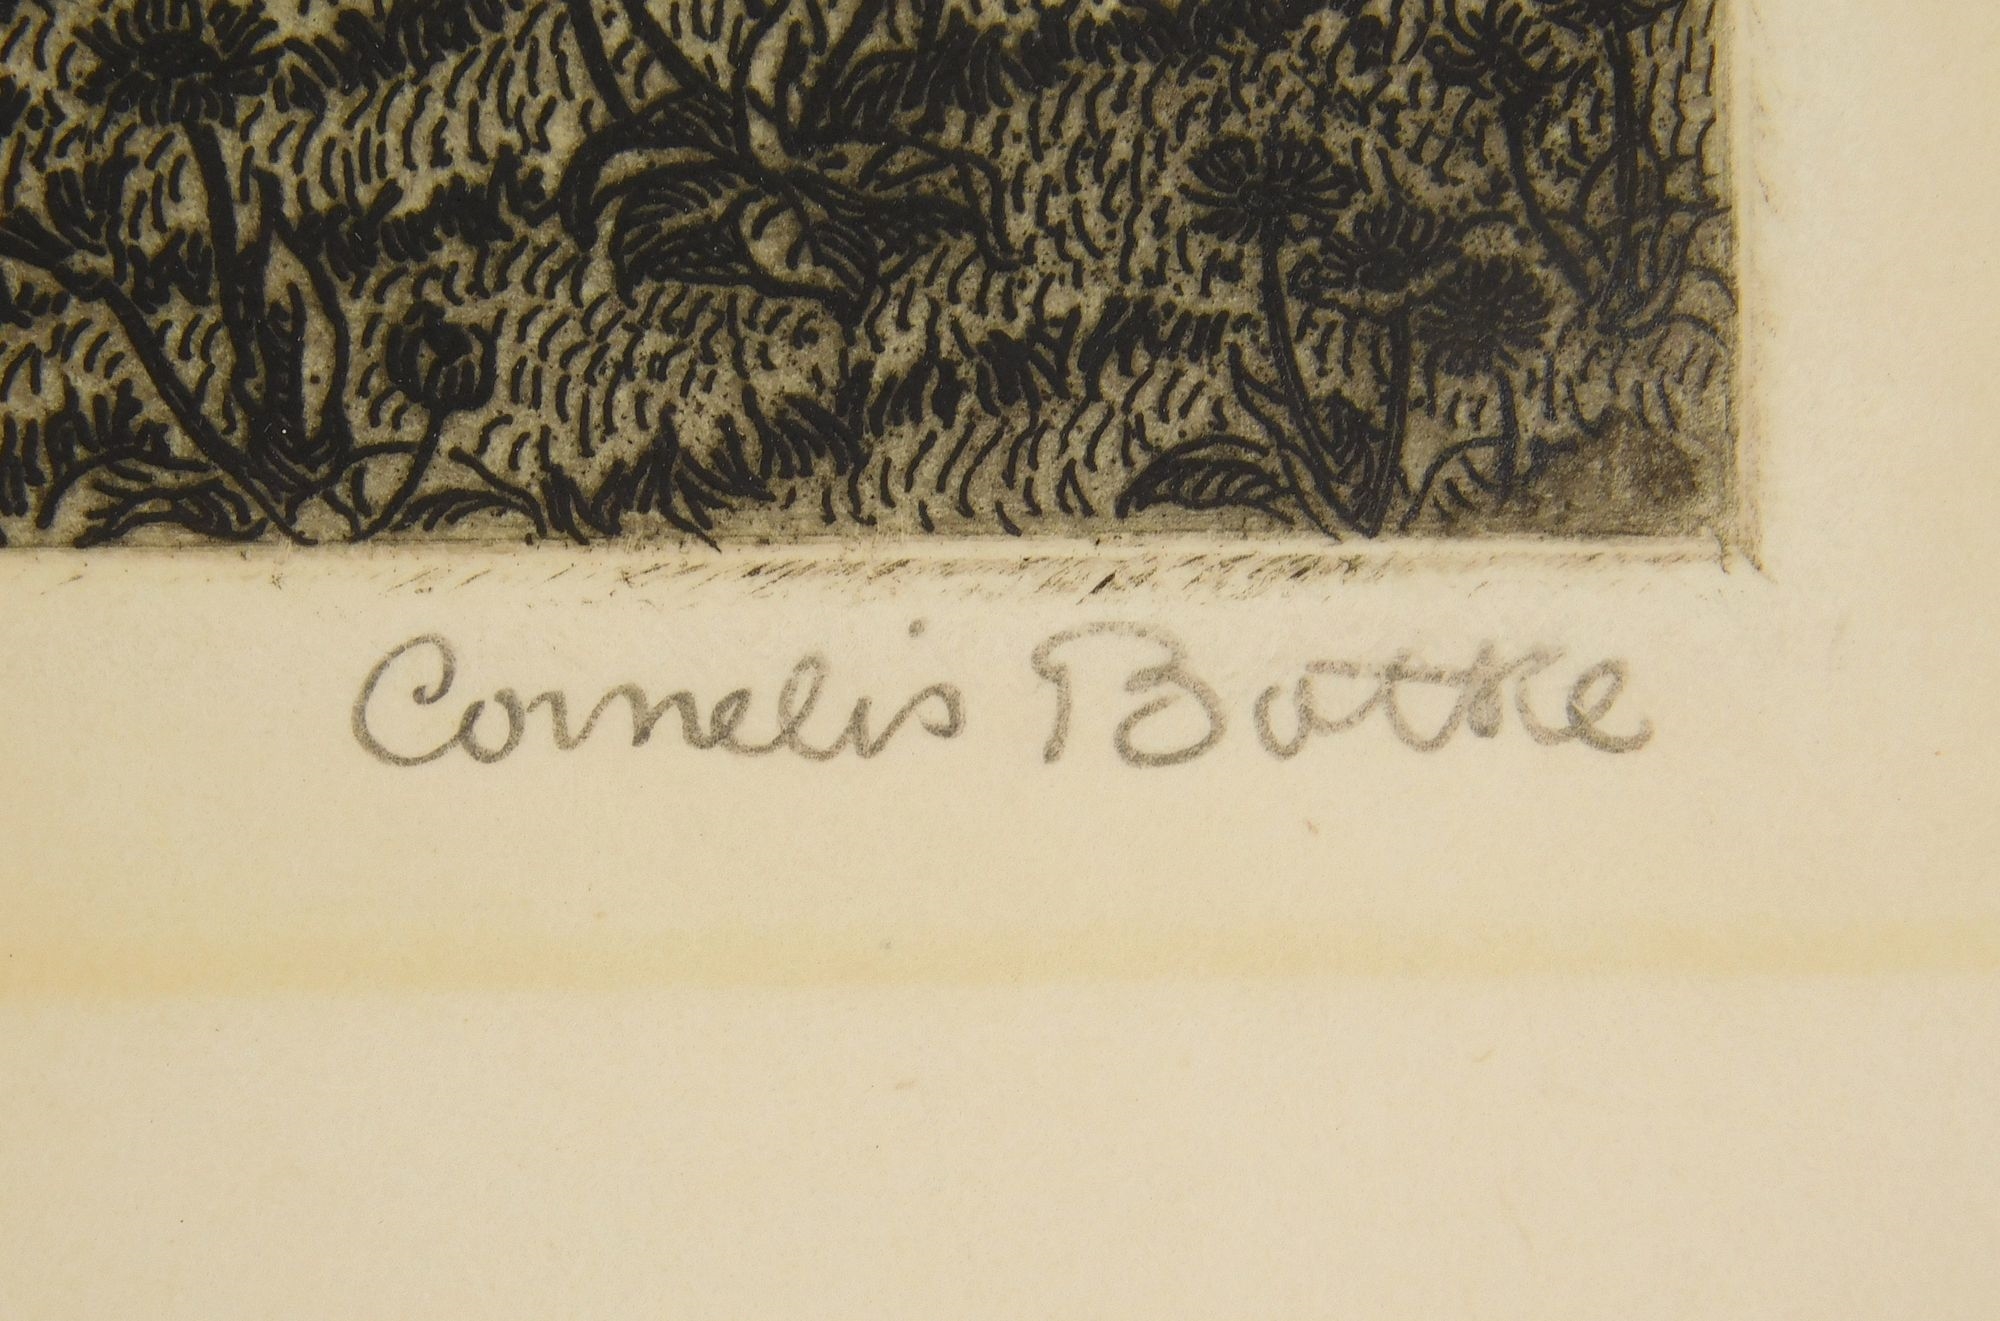 Cornelis Botke